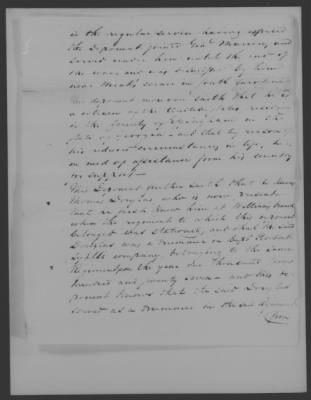 in the regular service having expired
this Deponent joined Genl Marion, and
served under him until the end of
the war, and was discharged by him
near South Carolina
This deponent moreover saith that he is
a citizen of the United States, residing
in the County of Effingham in the
State of Georgia, and that by reason of
his reduced circumstances in life, he is
in need of assistance from his country
for support—
This Deponent further saith that he knows
Thomas Douglas, who is now present
that he first knew him at
when the regiment to which this deponent
belonged was stationed, and that the said
Douglas was a drummer in Capt
company, belonging to the same
Regiment in the year one thousand seven
hundred and seventy seven and this de-
ponent knows that the said Douglas
served as a drummer in the said Regiment
from